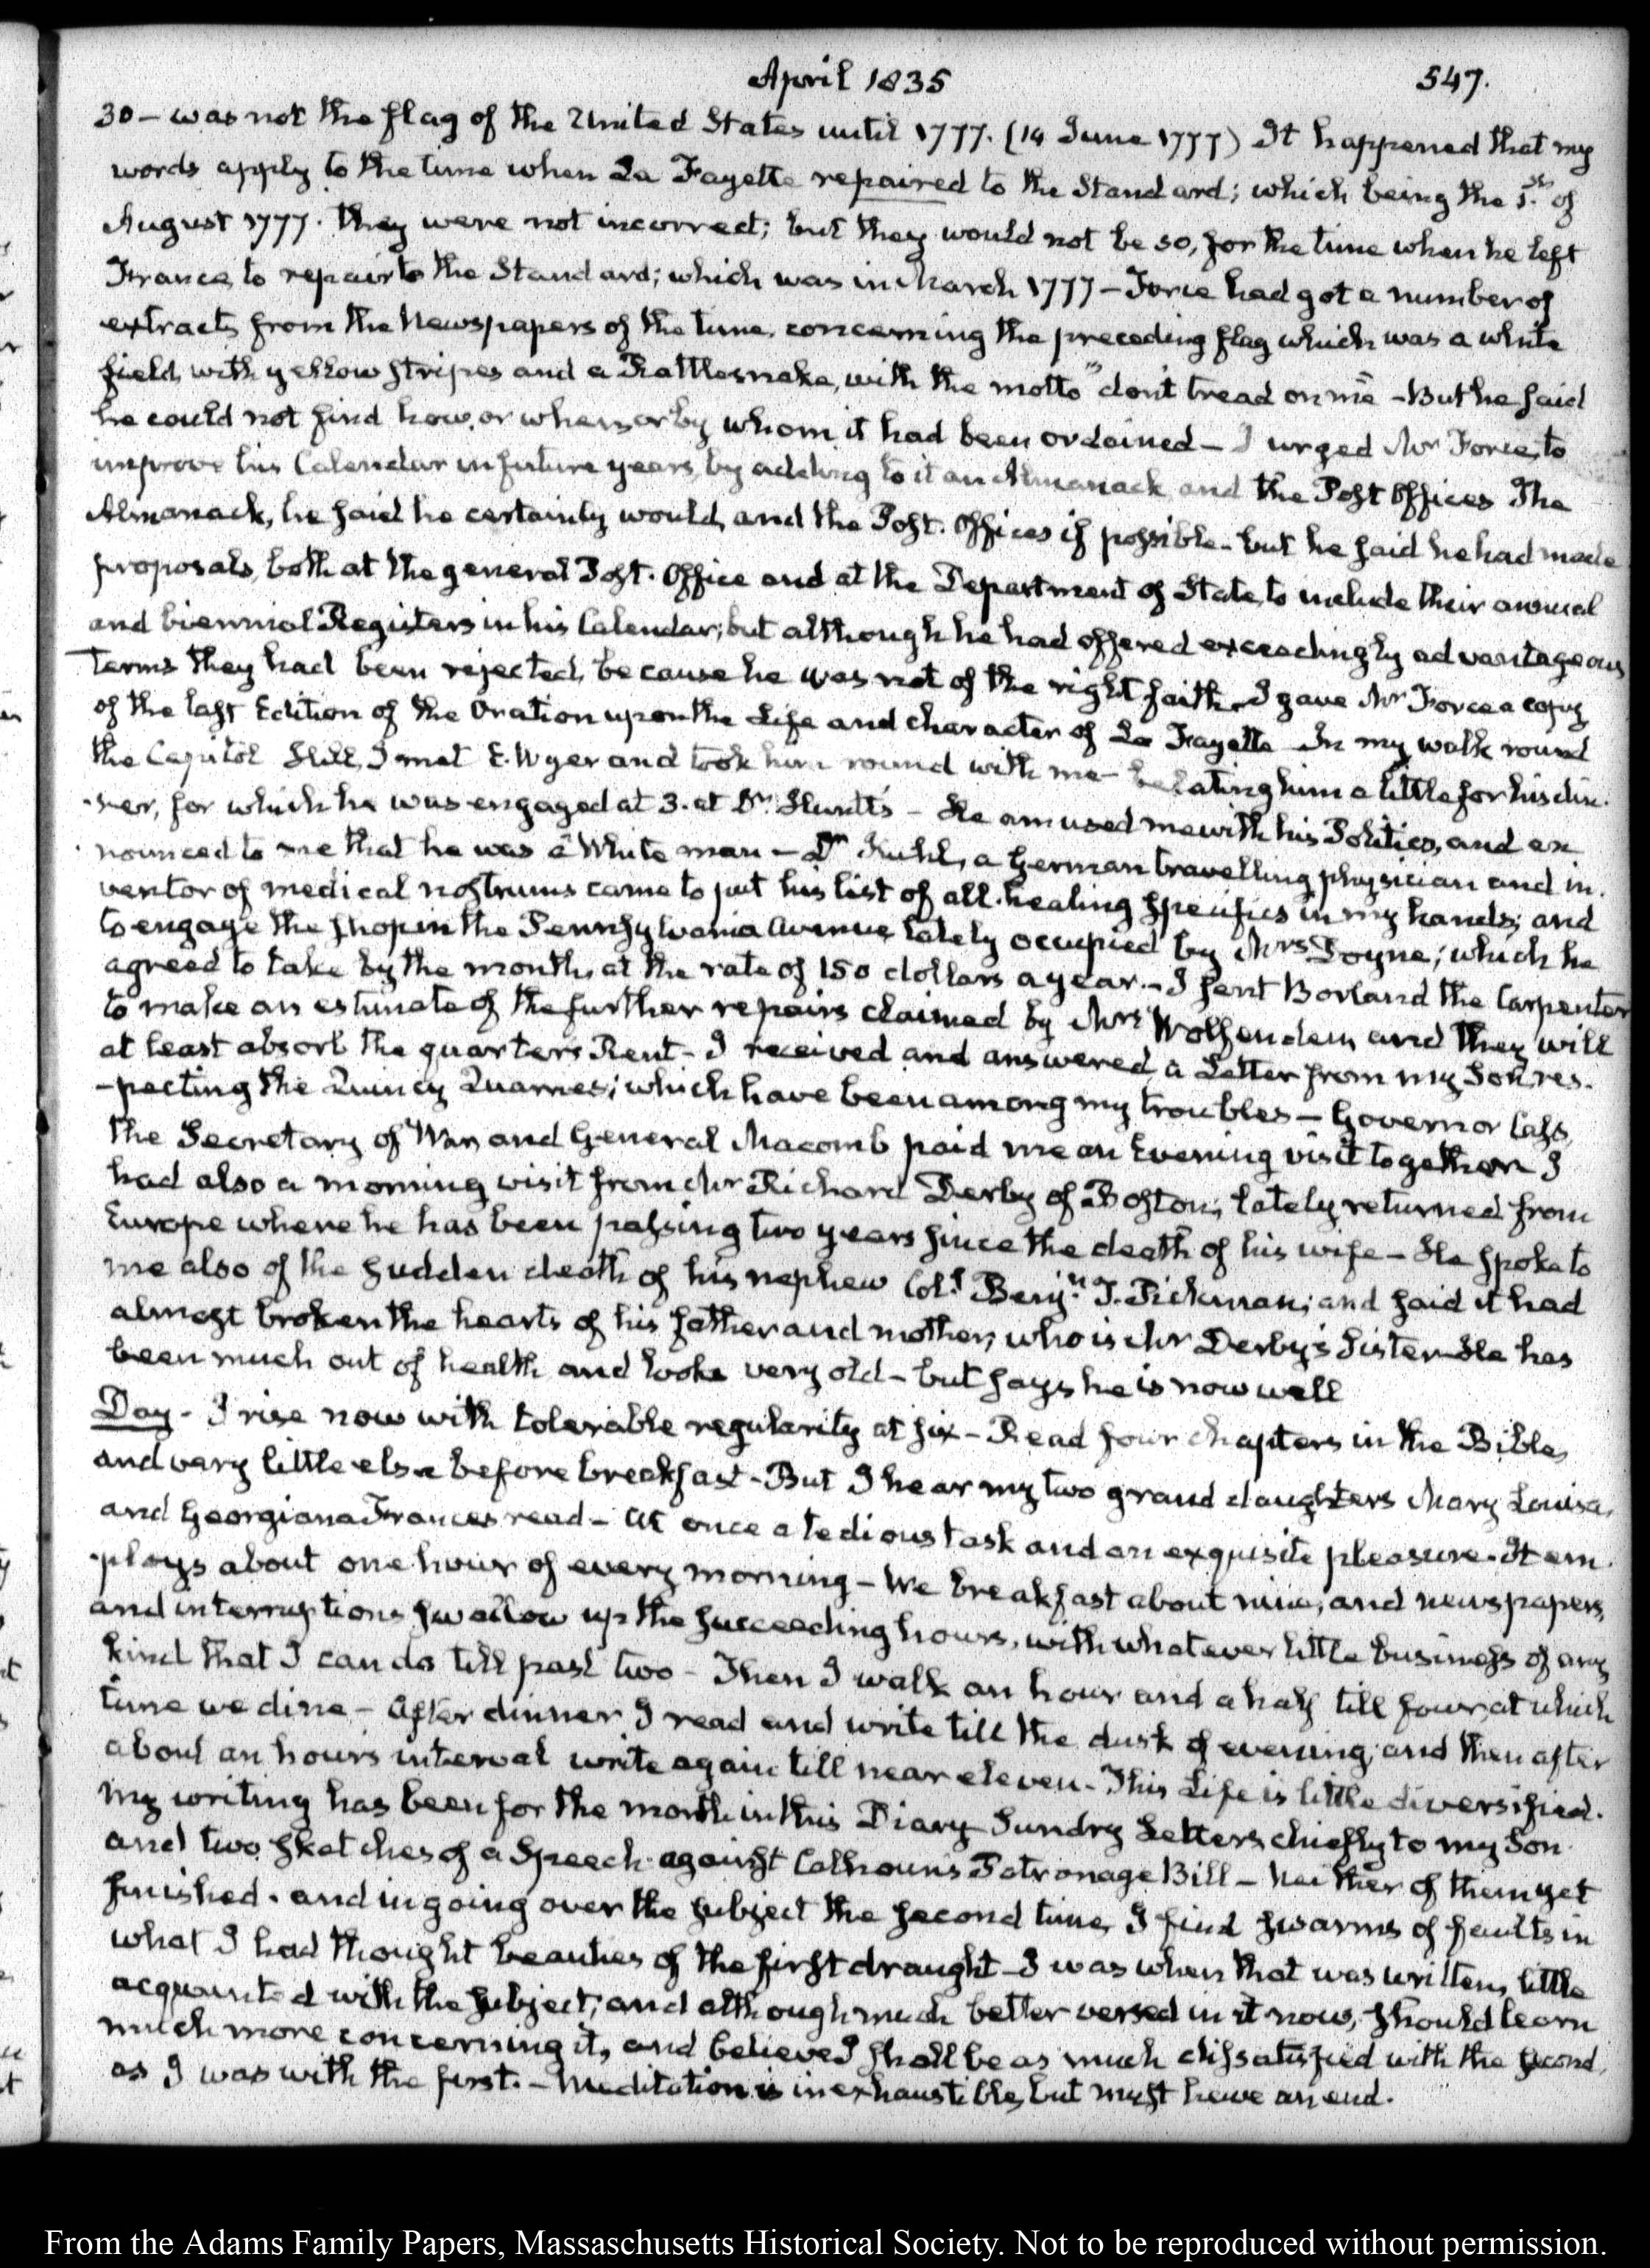 April 1835
547.
30 – was not the flag of the United States until 1777. (14 June 1777) It happened that my
words apply to the time when La Fayette repaired to the Standard; which being the 1st. of
August 1777. they were not incorrect; but they would not be so, for the time when he left
France, to repair to the Standard; which was in March 1777 – Force had got a number of
extracts from the Newspapers of the time, concerning the preceding flag which was a white
field, with yellow stripes and a Rattlesnake, with the motto "don't tread on me" – But he said
he could not find how, or when, or by whom it had been ordained – I urged Mr Force, to
improve his Calendar in future years, by adding to it an Almanack, and the Post Offices The
Almanack, he said he certainly would, and the Post. Offices if possible – but he said he had made
proposals, both at the general Post. Office and at the Department of State, to include their annual
and biennial Registers in his Calendar; but although he had offered exceedingly advantageous
terms they had been rejected, because he was not of the right faith – I gave Mr Force a copy
of the last Edition of the Oration upon the Life and character of La Fayette – In my walk round
the Capitol Hill, I met E. Wyer and took him round with me – belating him a little for his din-
-ner, for which he was engaged at 3. at Dr. Hunt's – He amused me with his Politics, and an
nounced to me that he was a White man – Dr Kuhl, a German travelling physician and in-
ventor of medical nostrums came to put his list of all-healing specifics in my hands; and
to engage the shop in the Pennsylvania Avenue, lately occupied by Mrs Doyne; which he
agreed to take by the month, at the rate of 150 dollars a year. – I sent Borland the Carpenter
to make an estimate of the further repairs claimed by Mrs Wolfenden, and they will
at least absorb the quarter's Rent – I received and answered, a Letter from my Son, res-
-pecting the Quincy Quarries; which have been among my troubles – Governor Cass,
the Secretary of War, and General Macomb paid me an Evening visit together. I
had also a morning visit from Mr Richard Derby of Boston; lately returned from
Europe where he has been passing two years since the death of his wife – He spoke to
me also of the sudden death of his nephew Coll. Benjn. T. Pickman; and said it had
almost broken the hearts of his father and mother, who is Mr Derby's Sister – He has
been much out of health and looks very old – but says he is now well
Day – I rise now with tolerable regularity at six – Read four chapters in the Bible,
and very little else before breakfast – But I hear my two grand daughters Mary Louisa,
and Georgiana Frances read – at once a tedious task and an exquisite pleasure. It em-
-ploys about one hour of every morning – We breakfast about nine, and newspapers,
and interruptions swallow up the succeeding hours, with whatever little business of any
kind that I can do till past two – Then I walk an hour and a half till four, at which
time we dine – After dinner I read and write till the dusk of evening; and then after
about an hour's interval write again till near eleven – This Life is little diversified.
My writing has been for the month in this Diary – Sundry Letters chiefly to my Son
and two sketches of a Speech against Calhoun's Patronage Bill – Neither of them yet
finished. and in going over the subject the second time, I find swarms of faults in
what I had thought beauties of the first draught – I was when that was written, little
acquainted with the subject; and although much better versed in it now, should learn
much more concerning it, and believe I shall be as much dissatisfied with the second,
as I was with the first. – Meditation is inexhaustible, but must have an end.
From the Adams Family Papers, Massaschusetts Historical Society. Not to be reproduced without permission.